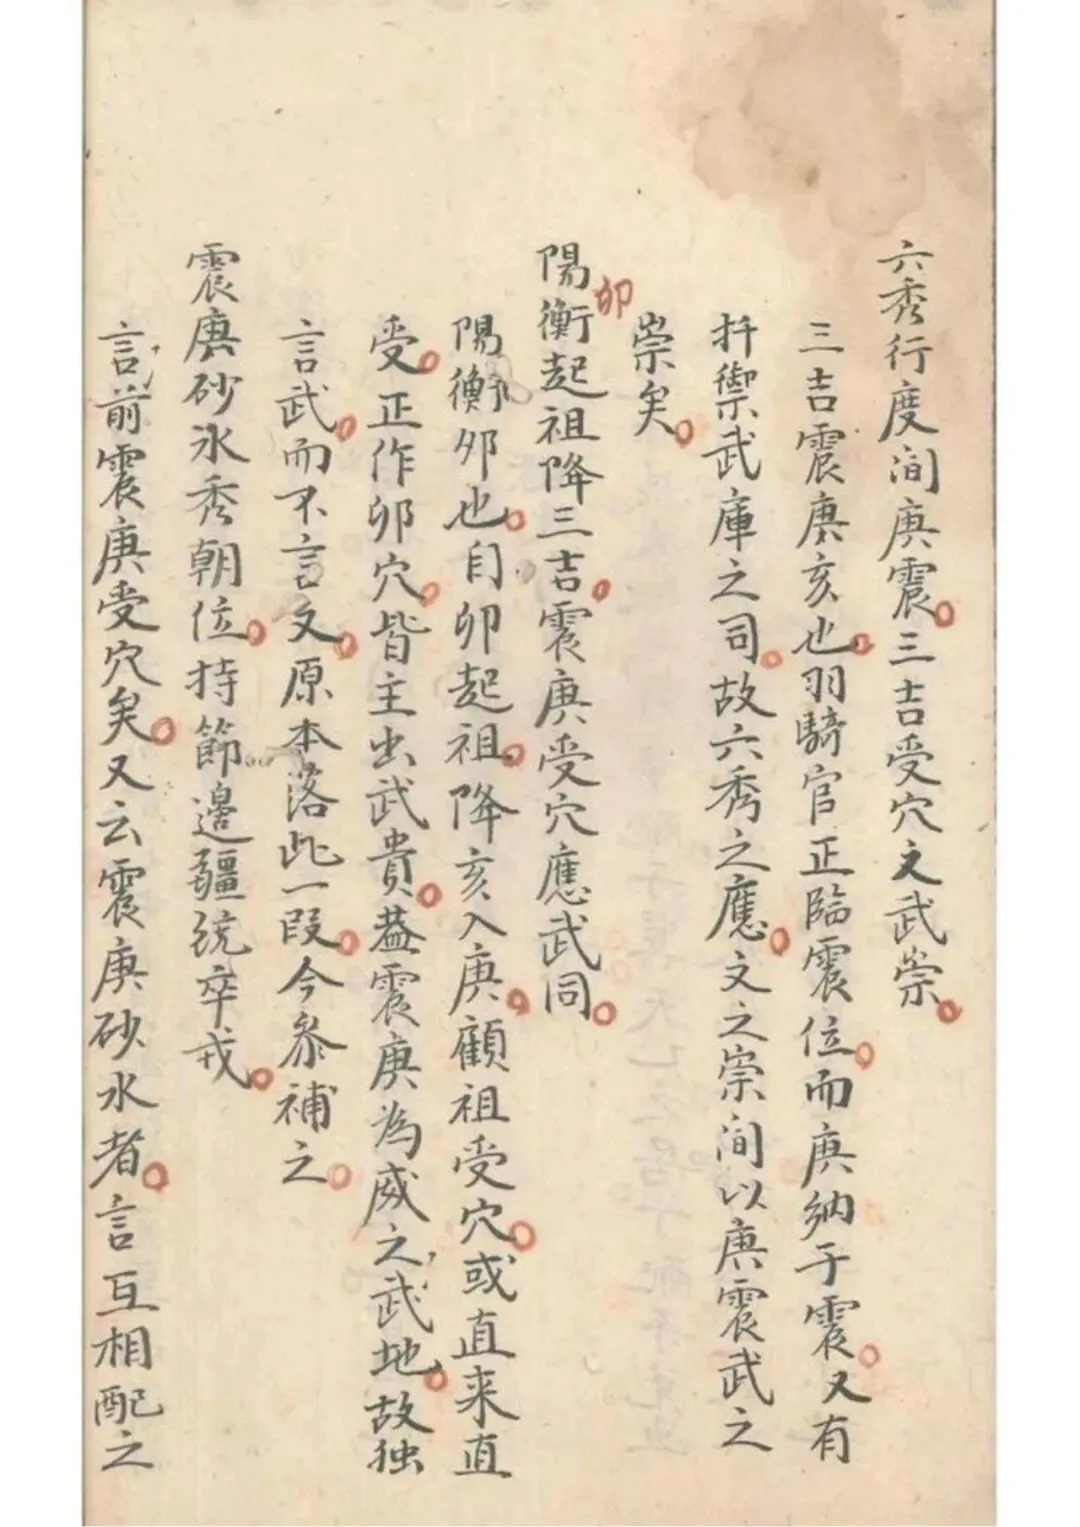 六秀行度间庚震三吉受穴文武崇
三吉震庚亥也羽騎官正臨震位而庚納于震又有
扞禦武庫之司故六秀之應文之崇间以庚震武之
崇矣
卯
陽衡起祖降三吉震庚受穴應武同
陽衡卯也自卯起祖降亥入庚顧祖受穴或直来直
受正作卯穴皆主出武貴葢震庚為威之武地故独
言武而不言文原本落此一段今叅補之
震庚砂水秀朝位持節邉疆統卒戎
言前震庚受穴矣又云震庚砂水者言互相配之